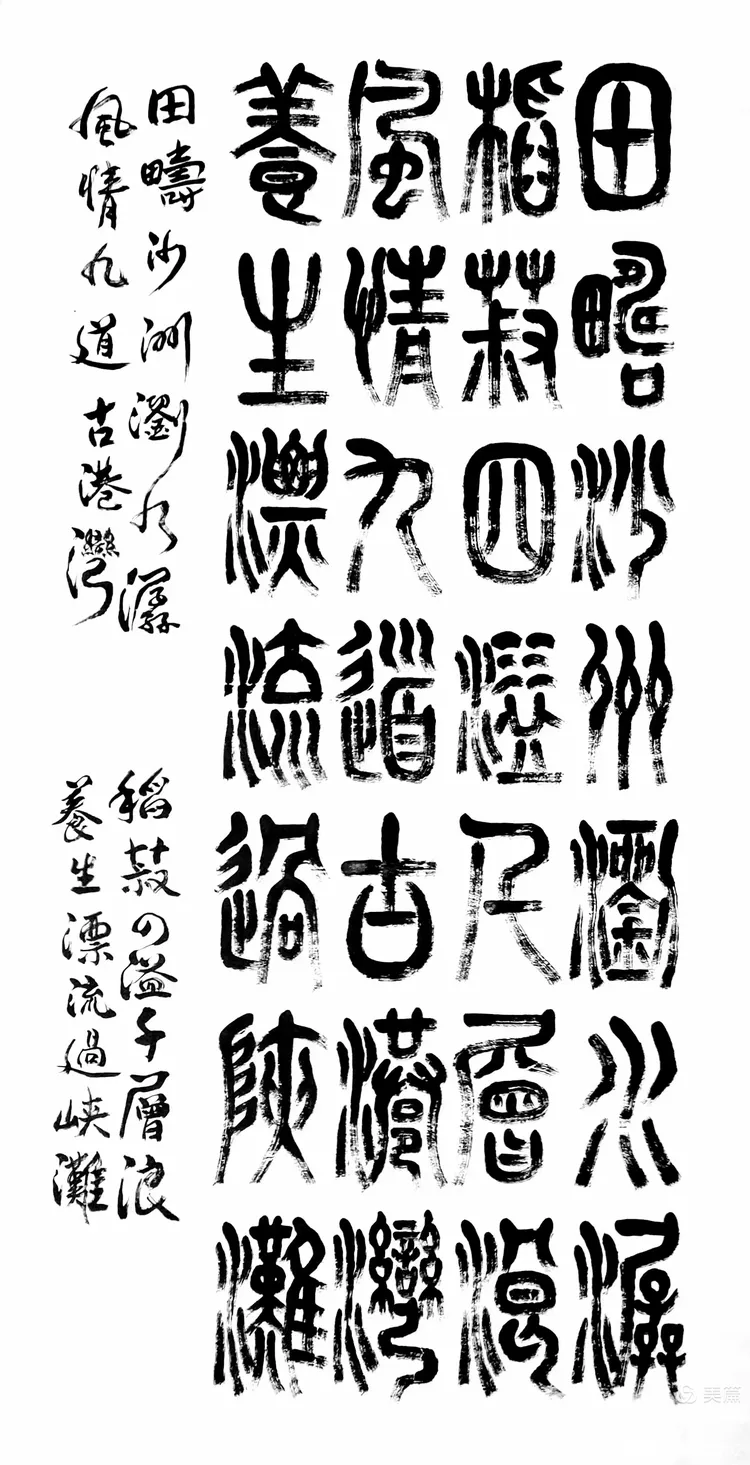 田疇沙州瀏水潺
稻菽四溢千層浪
風情九道古港灣
養生漂流過陜灘
田疇沙洲瀏水潺
稻菽四溢千層浪
風情九道古港灣
養生漂流過峡灘
美篇